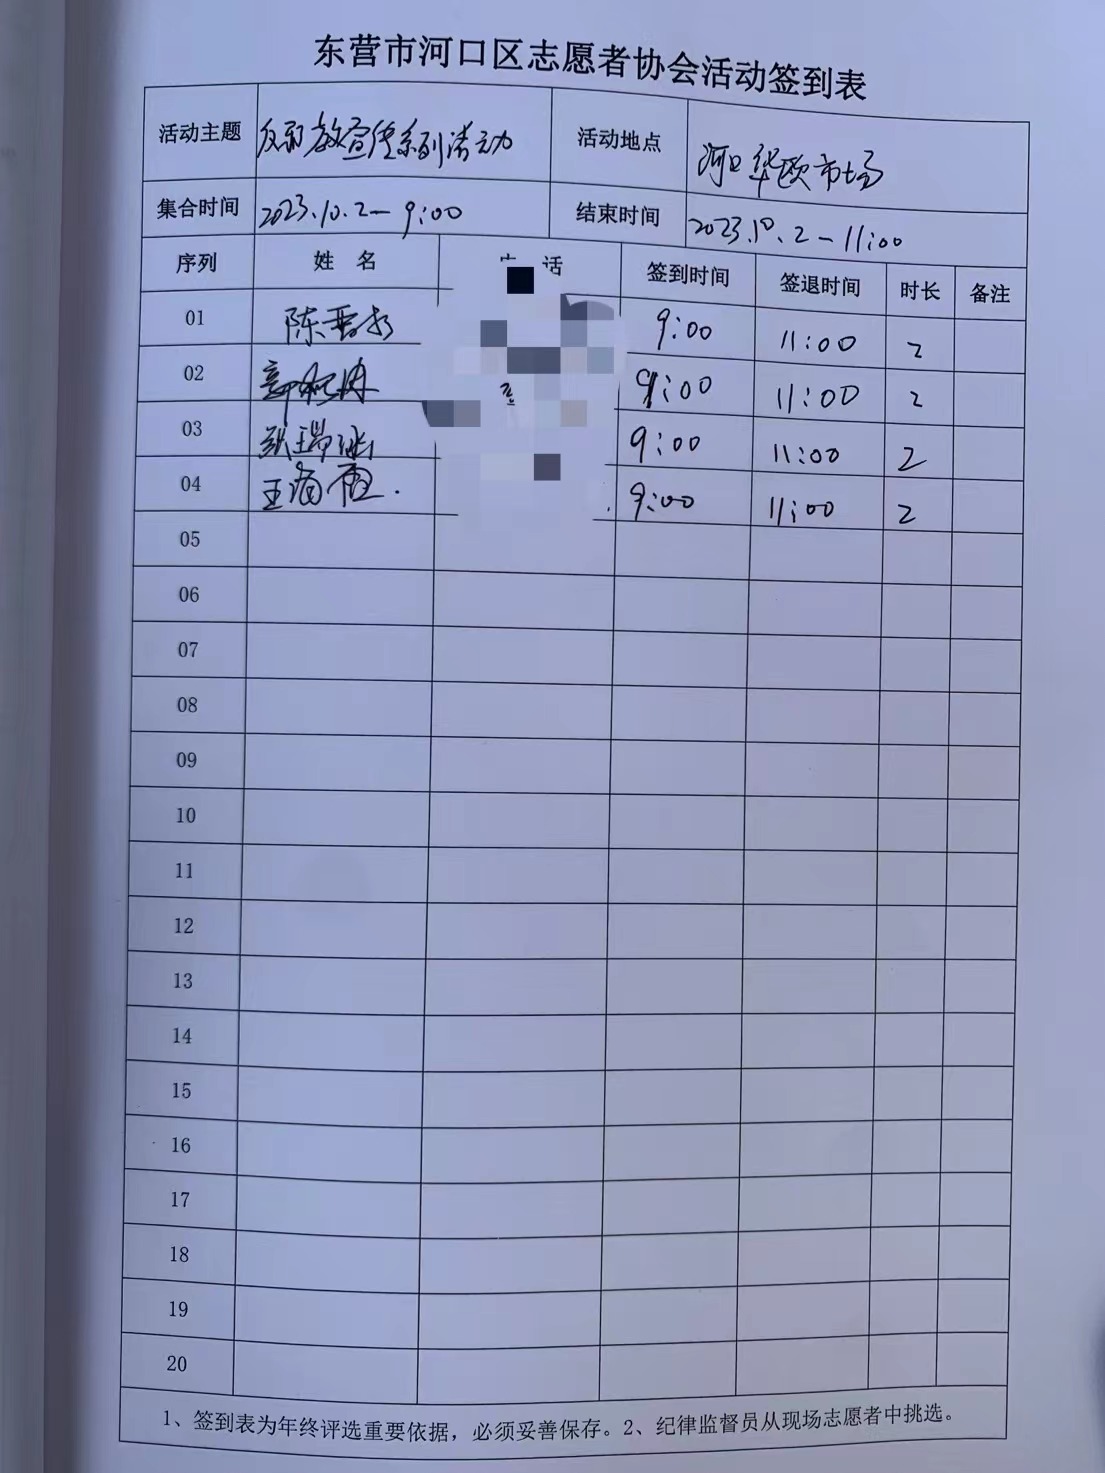 东营市河口区志愿者协会活动签到表
活动主题 反邪教宣传系列活动 活动地点 河口华欧市场
集合时间 2023.10.2-9:00 结束时间 2023.10.2-11:00
序列 姓名 话 签到时间 签退时间 时长 备注
01 陈 9:00 11:00 2
02 9:00 11:00 2
03 瑞 9:00 11:00 2
04 王 9:00 11:00 2
05
06
07
08
09
10
11
12
13
14
15
16
17
18
19
20
1、签到表为年终评选重要依据，必须妥善保存。2、纪律监督员从现场志愿者中挑选。